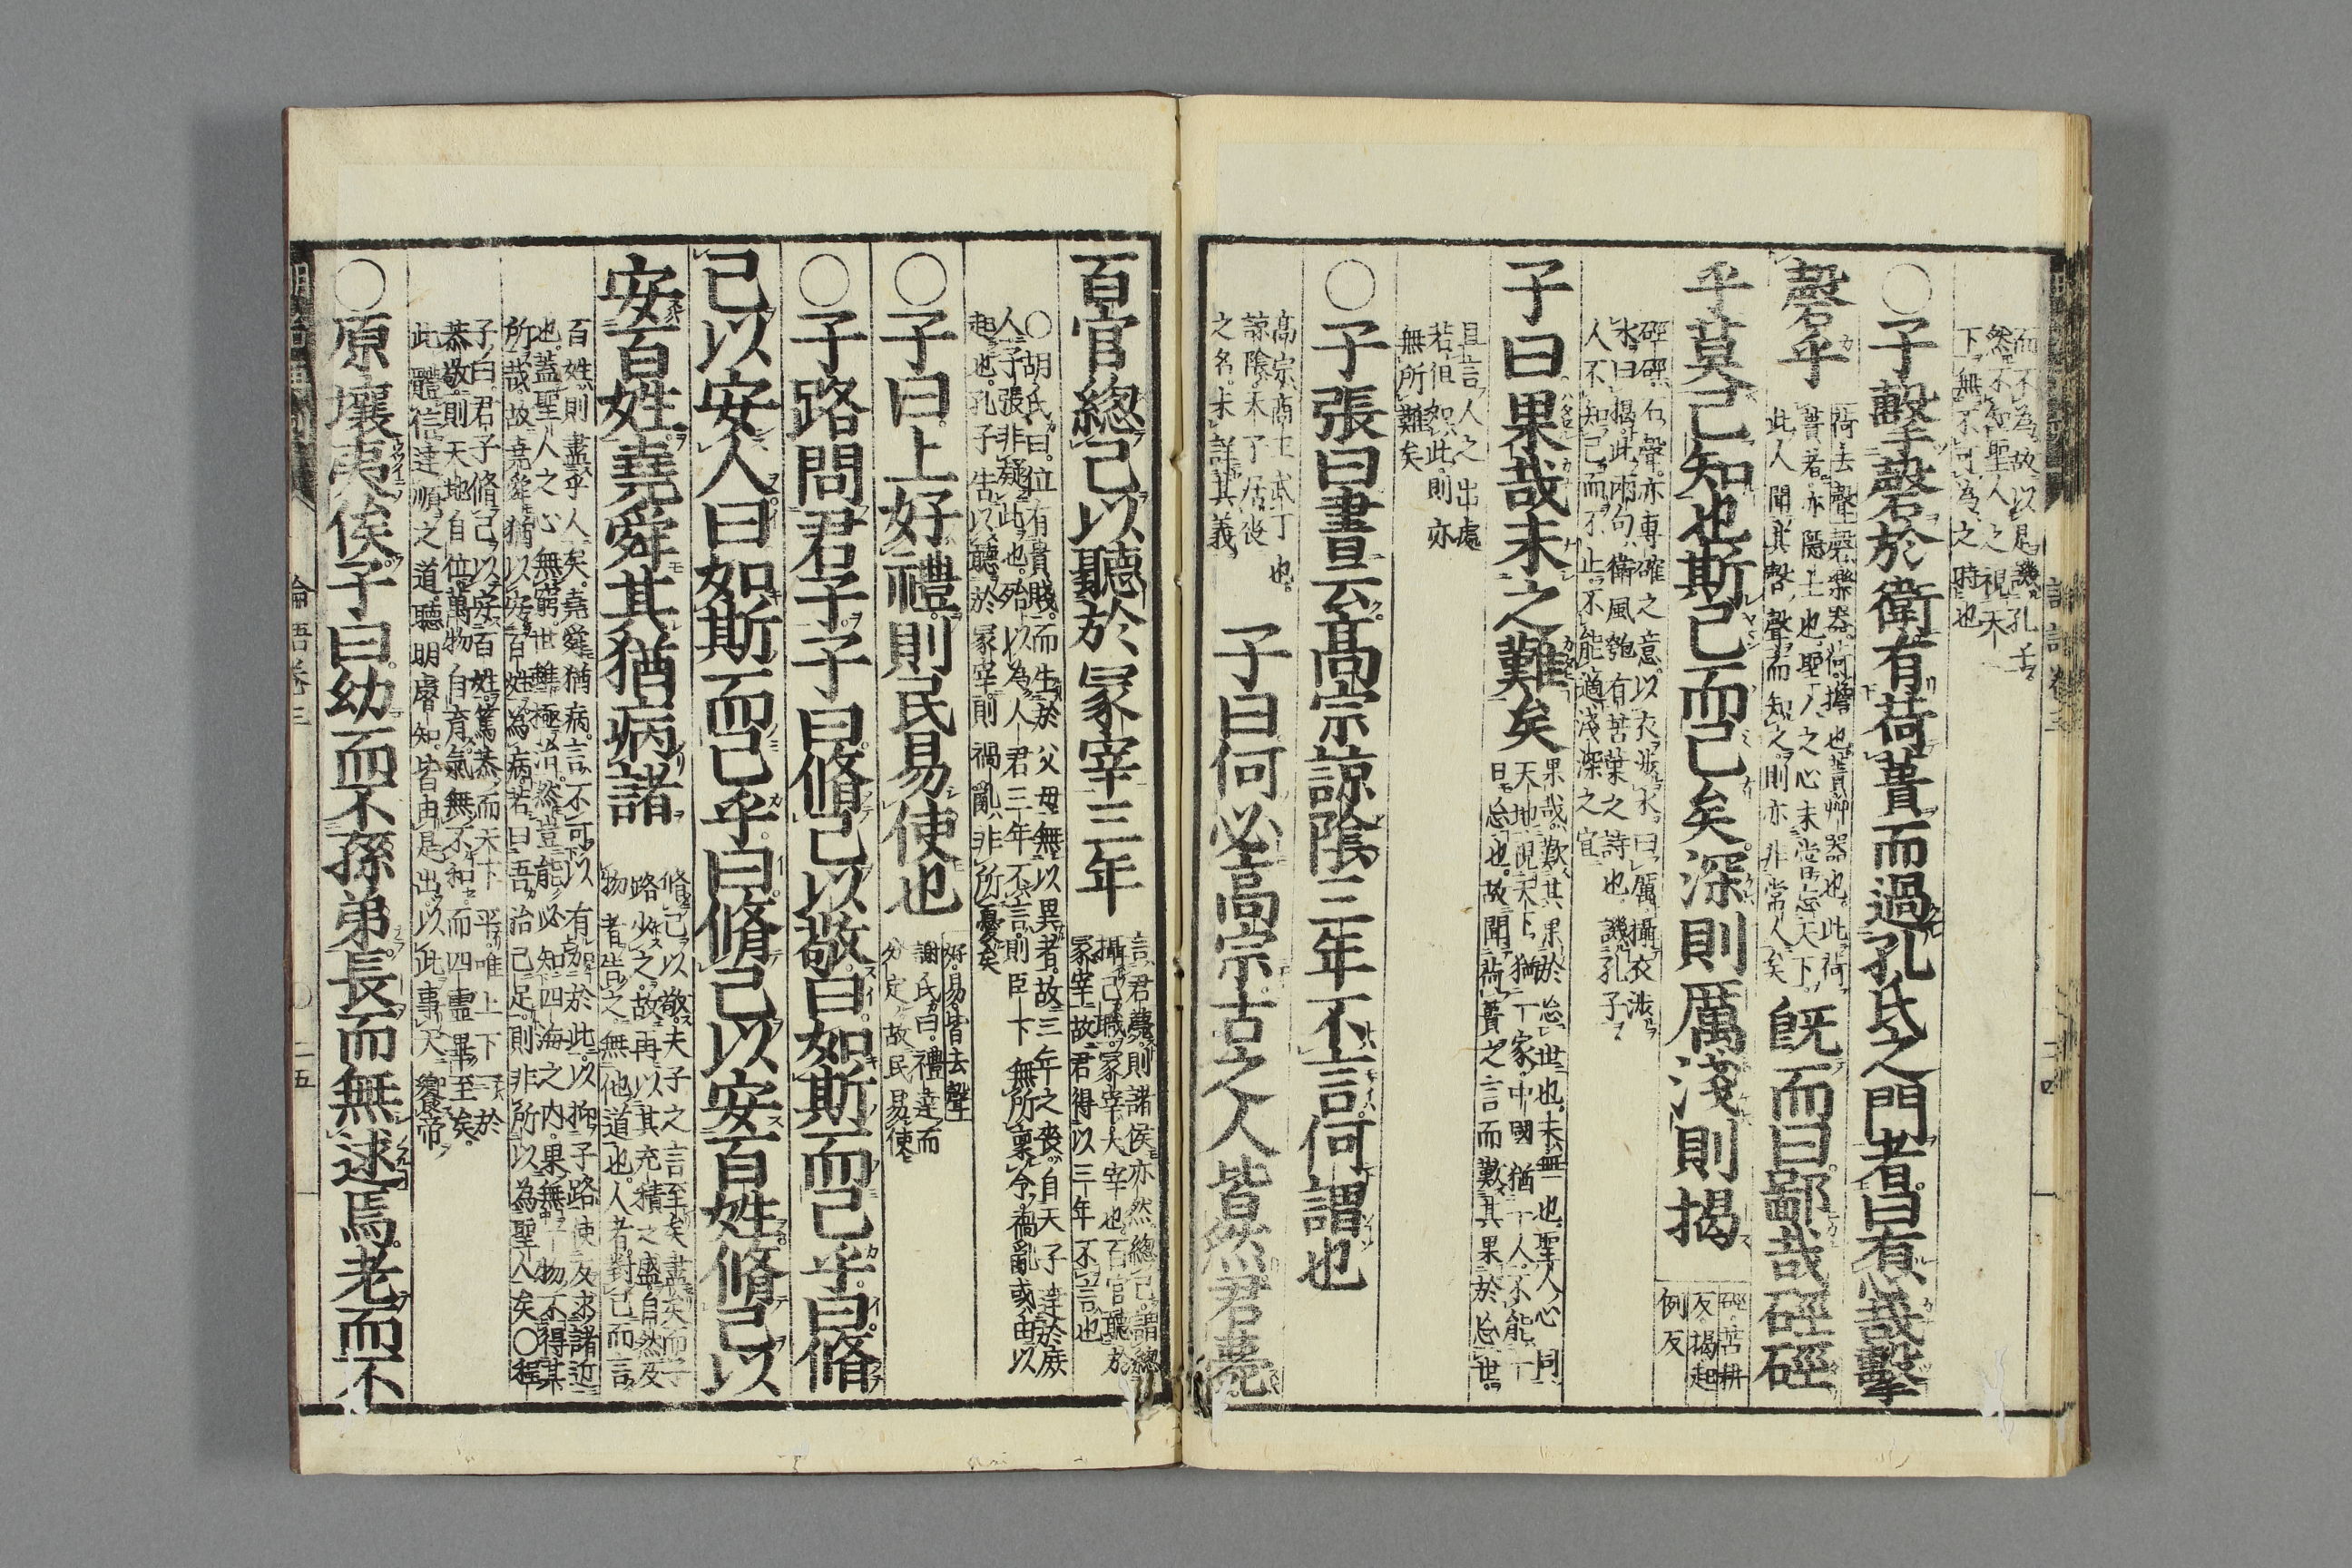 而不為故以是譏孔子
然不知聖人之視天
下無不可為之時也
○子擊磬於衛有荷蕢而過孔氏之門者曰有心哉擊
磬乎
荷去聲磬樂器荷擔也蕢艸器也此荷
蕢者亦隱士也聖人之心未嘗忘天下
此人聞其磬聲而知之則亦非常人矣
既而曰鄙哉硜硜
乎莫己知也斯己而已矣深則厲淺則揭
硜苦耕
反揭起
例反
硜硜石聲亦專確之意以衣涉水曰厲攝衣涉
水曰揭此兩句衛風匏有苦葉之詩也譏孔子
人不知己而不止不能適淺深之宜
子曰果哉末之難矣
果哉歎其果於忘世也末無也聖人心同
天地視天下猶一家中國猶一人不能一
日忘也故聞荷蕢之言而歎其果於忘世
且言人之出處
若但如此則亦
無所難矣
○子張曰書云高宗諒陰三年不言何謂也
高宗商王武丁也
諒陰天子居喪
之名未詳其義
子曰何必高宗古之人皆然君薨
百官總己以聽於冢宰三年
言君薨則諸侯亦然總己謂總
攝己職冢宰大宰也百官聽於
冢宰故君得以三年不言也
○胡氏曰位有貴賤而生於父母無以異者故三年之喪自天子達於庶
人子張非疑此也殆以為人君三年不言則臣下無所稟令禍亂或由以
起也孔子告以聽於冢宰則禍亂非所憂矣
○子曰上好禮則民易使也
好易皆去聲
謝氏曰禮達而
分定故民易使
○子路問君子子曰脩己以敬曰如斯而已乎曰脩
己以安人曰如斯而已乎曰脩己以安百姓脩己以
安百姓堯舜其猶病諸
脩己以敬夫子之言至矣盡矣而子
路少之故再以其充積之盛自然及
物者告之無他道也人者對己而言
百姓則盡乎人矣堯舜猶病言不可以有加於此以抑子路使反求諸近
也蓋聖人之心無窮世雖極治然豈能必知四海之內果無一物不得其
所哉故堯舜猶以安百姓為病若曰吾治己足則非所以為聖人矣○程
子曰君子脩己以安百姓篤恭而天下平唯上下一於
恭敬則天地自位萬物自育氣無不和而四靈畢至矣
此體信達順之道聰明睿知皆由是出以此事天饗帝
○原壤夷俟子曰幼而不孫弟長而無述焉老而不
論語卷三
二五